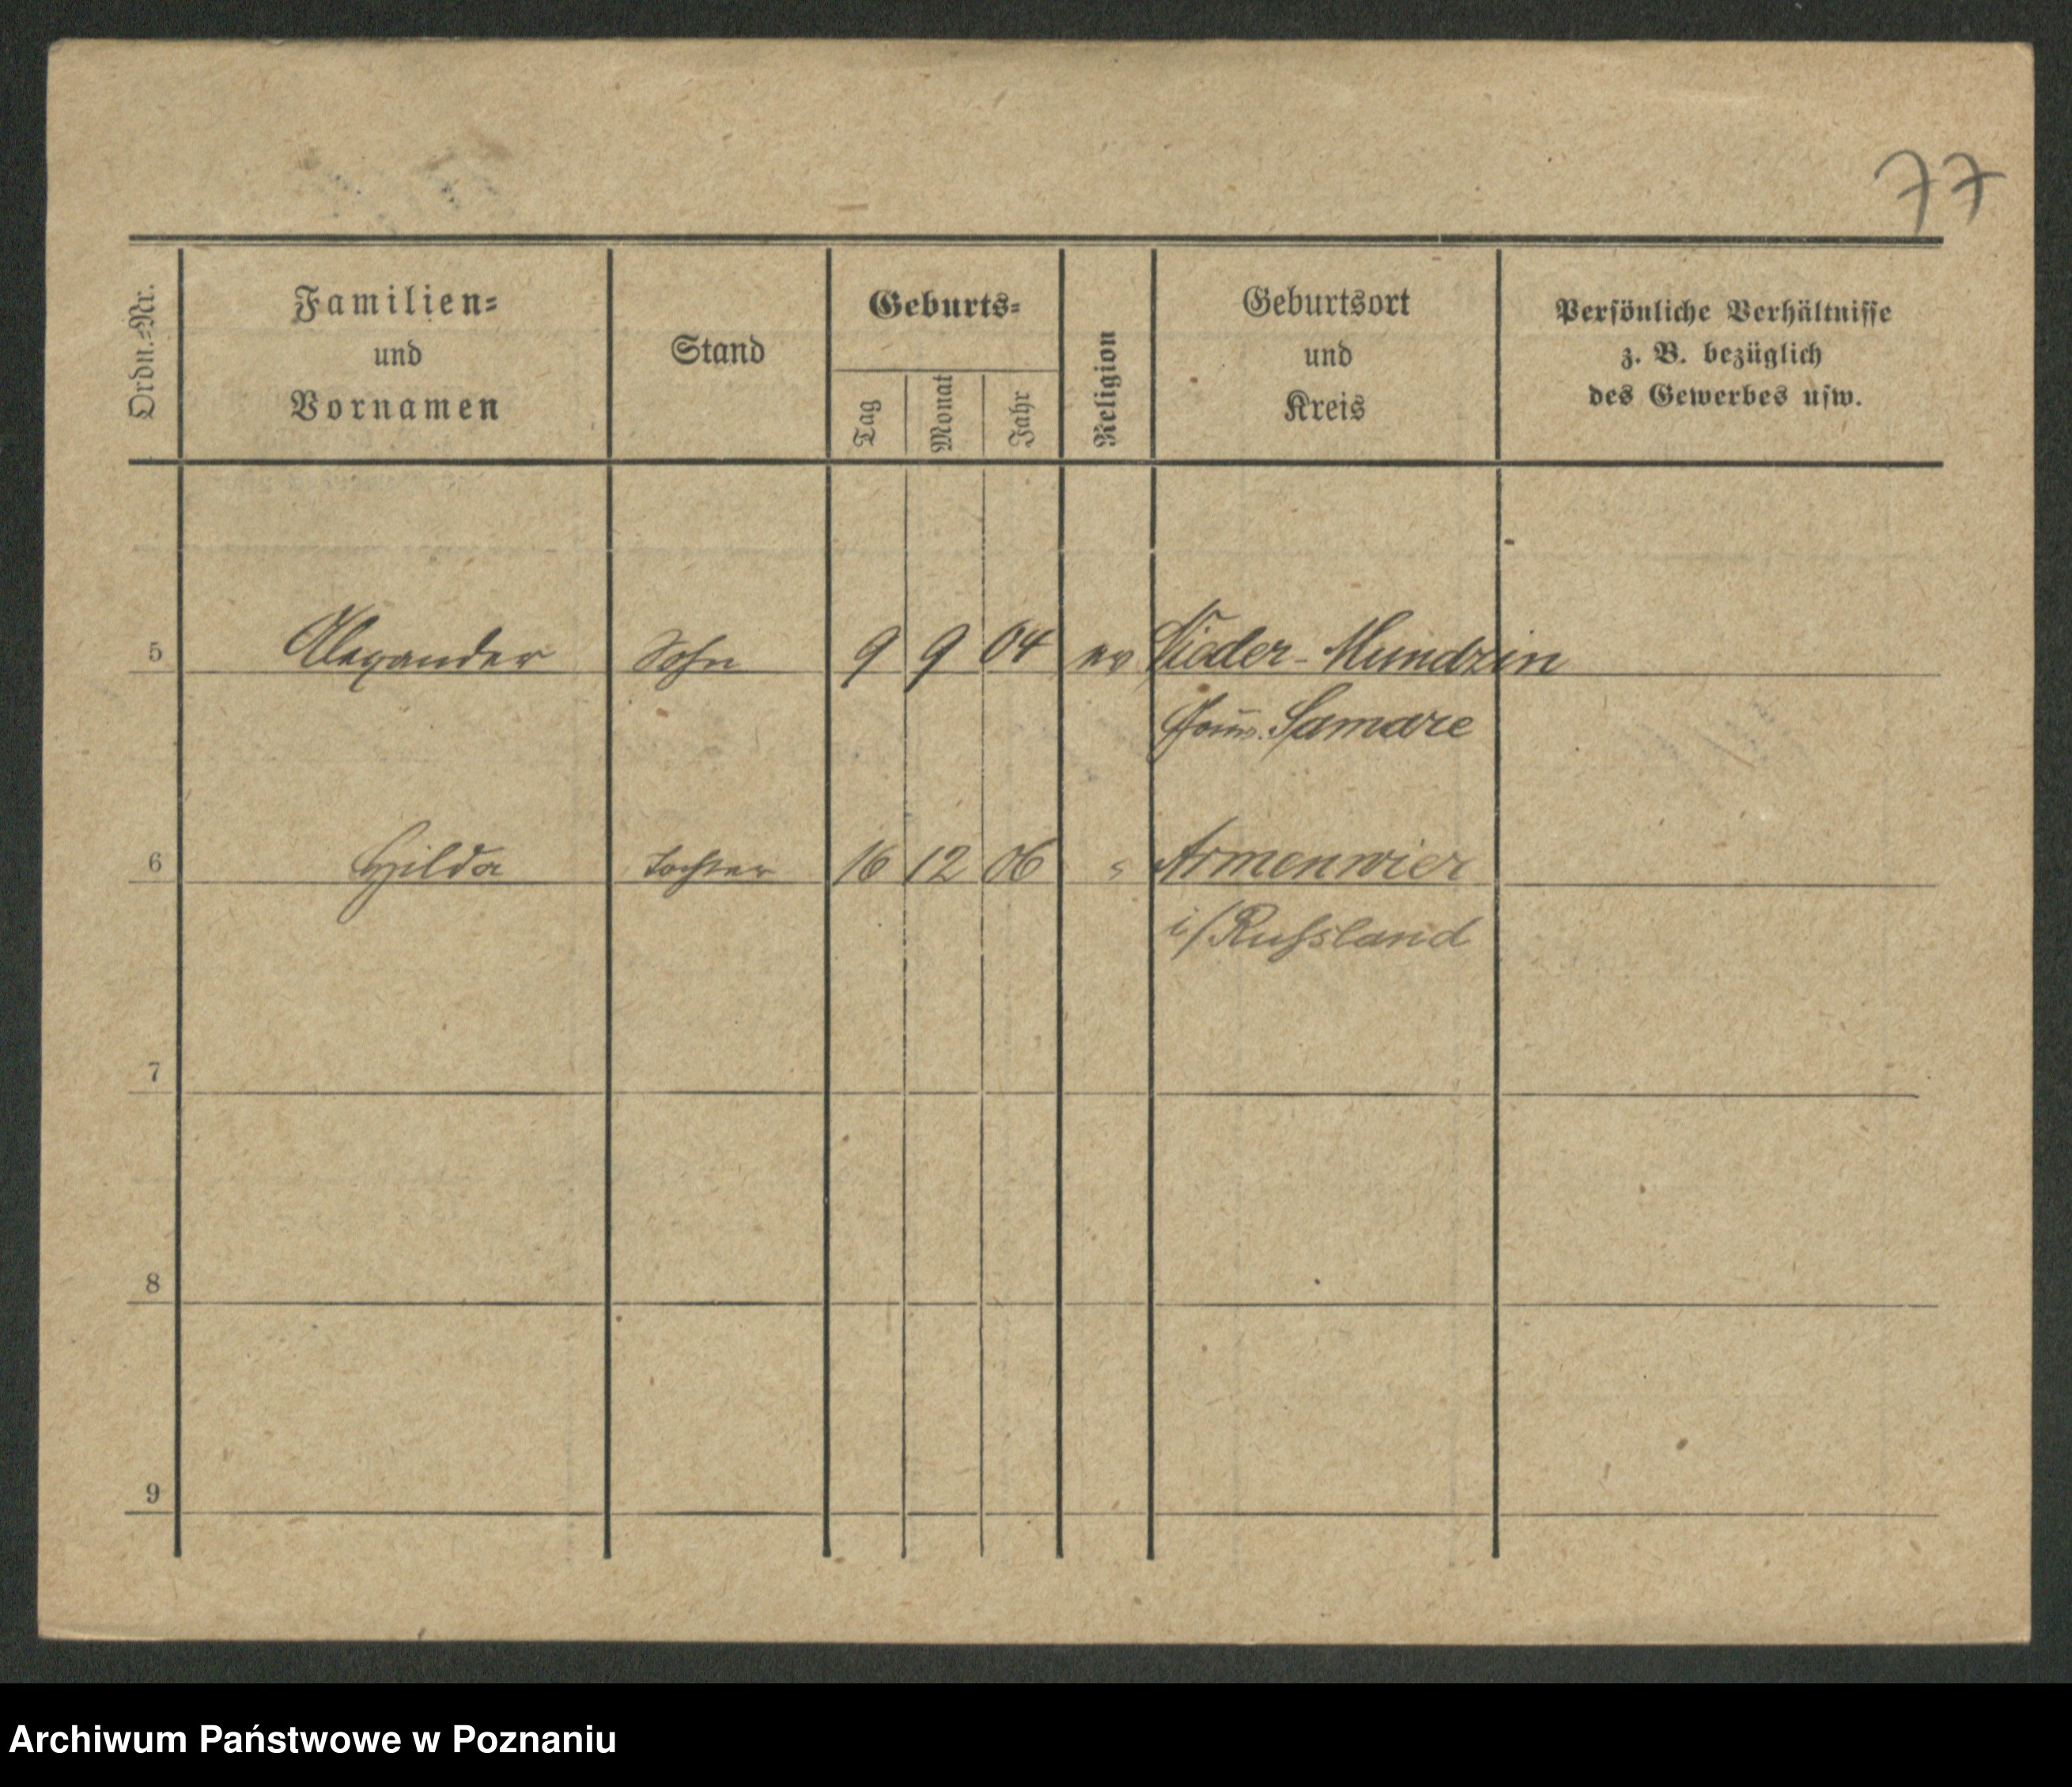 77
Ordn.=Nr.
Familien=
und
Vornamen
Stand
Geburts=
Tag
Monat
Jahr
Religion
Geburtsort
und
Kreis
Persönliche Verhältnisse
z. B. bezüglich
des Gewerbes usw.
5 Alexander Sohn 9 9 04 ev Nieder-Mundzin
Samare
6 Hilda Tochter 16 12 06 " Armenwier
i/Russland
7
8
9
Archiwum Państwowe w Poznaniu